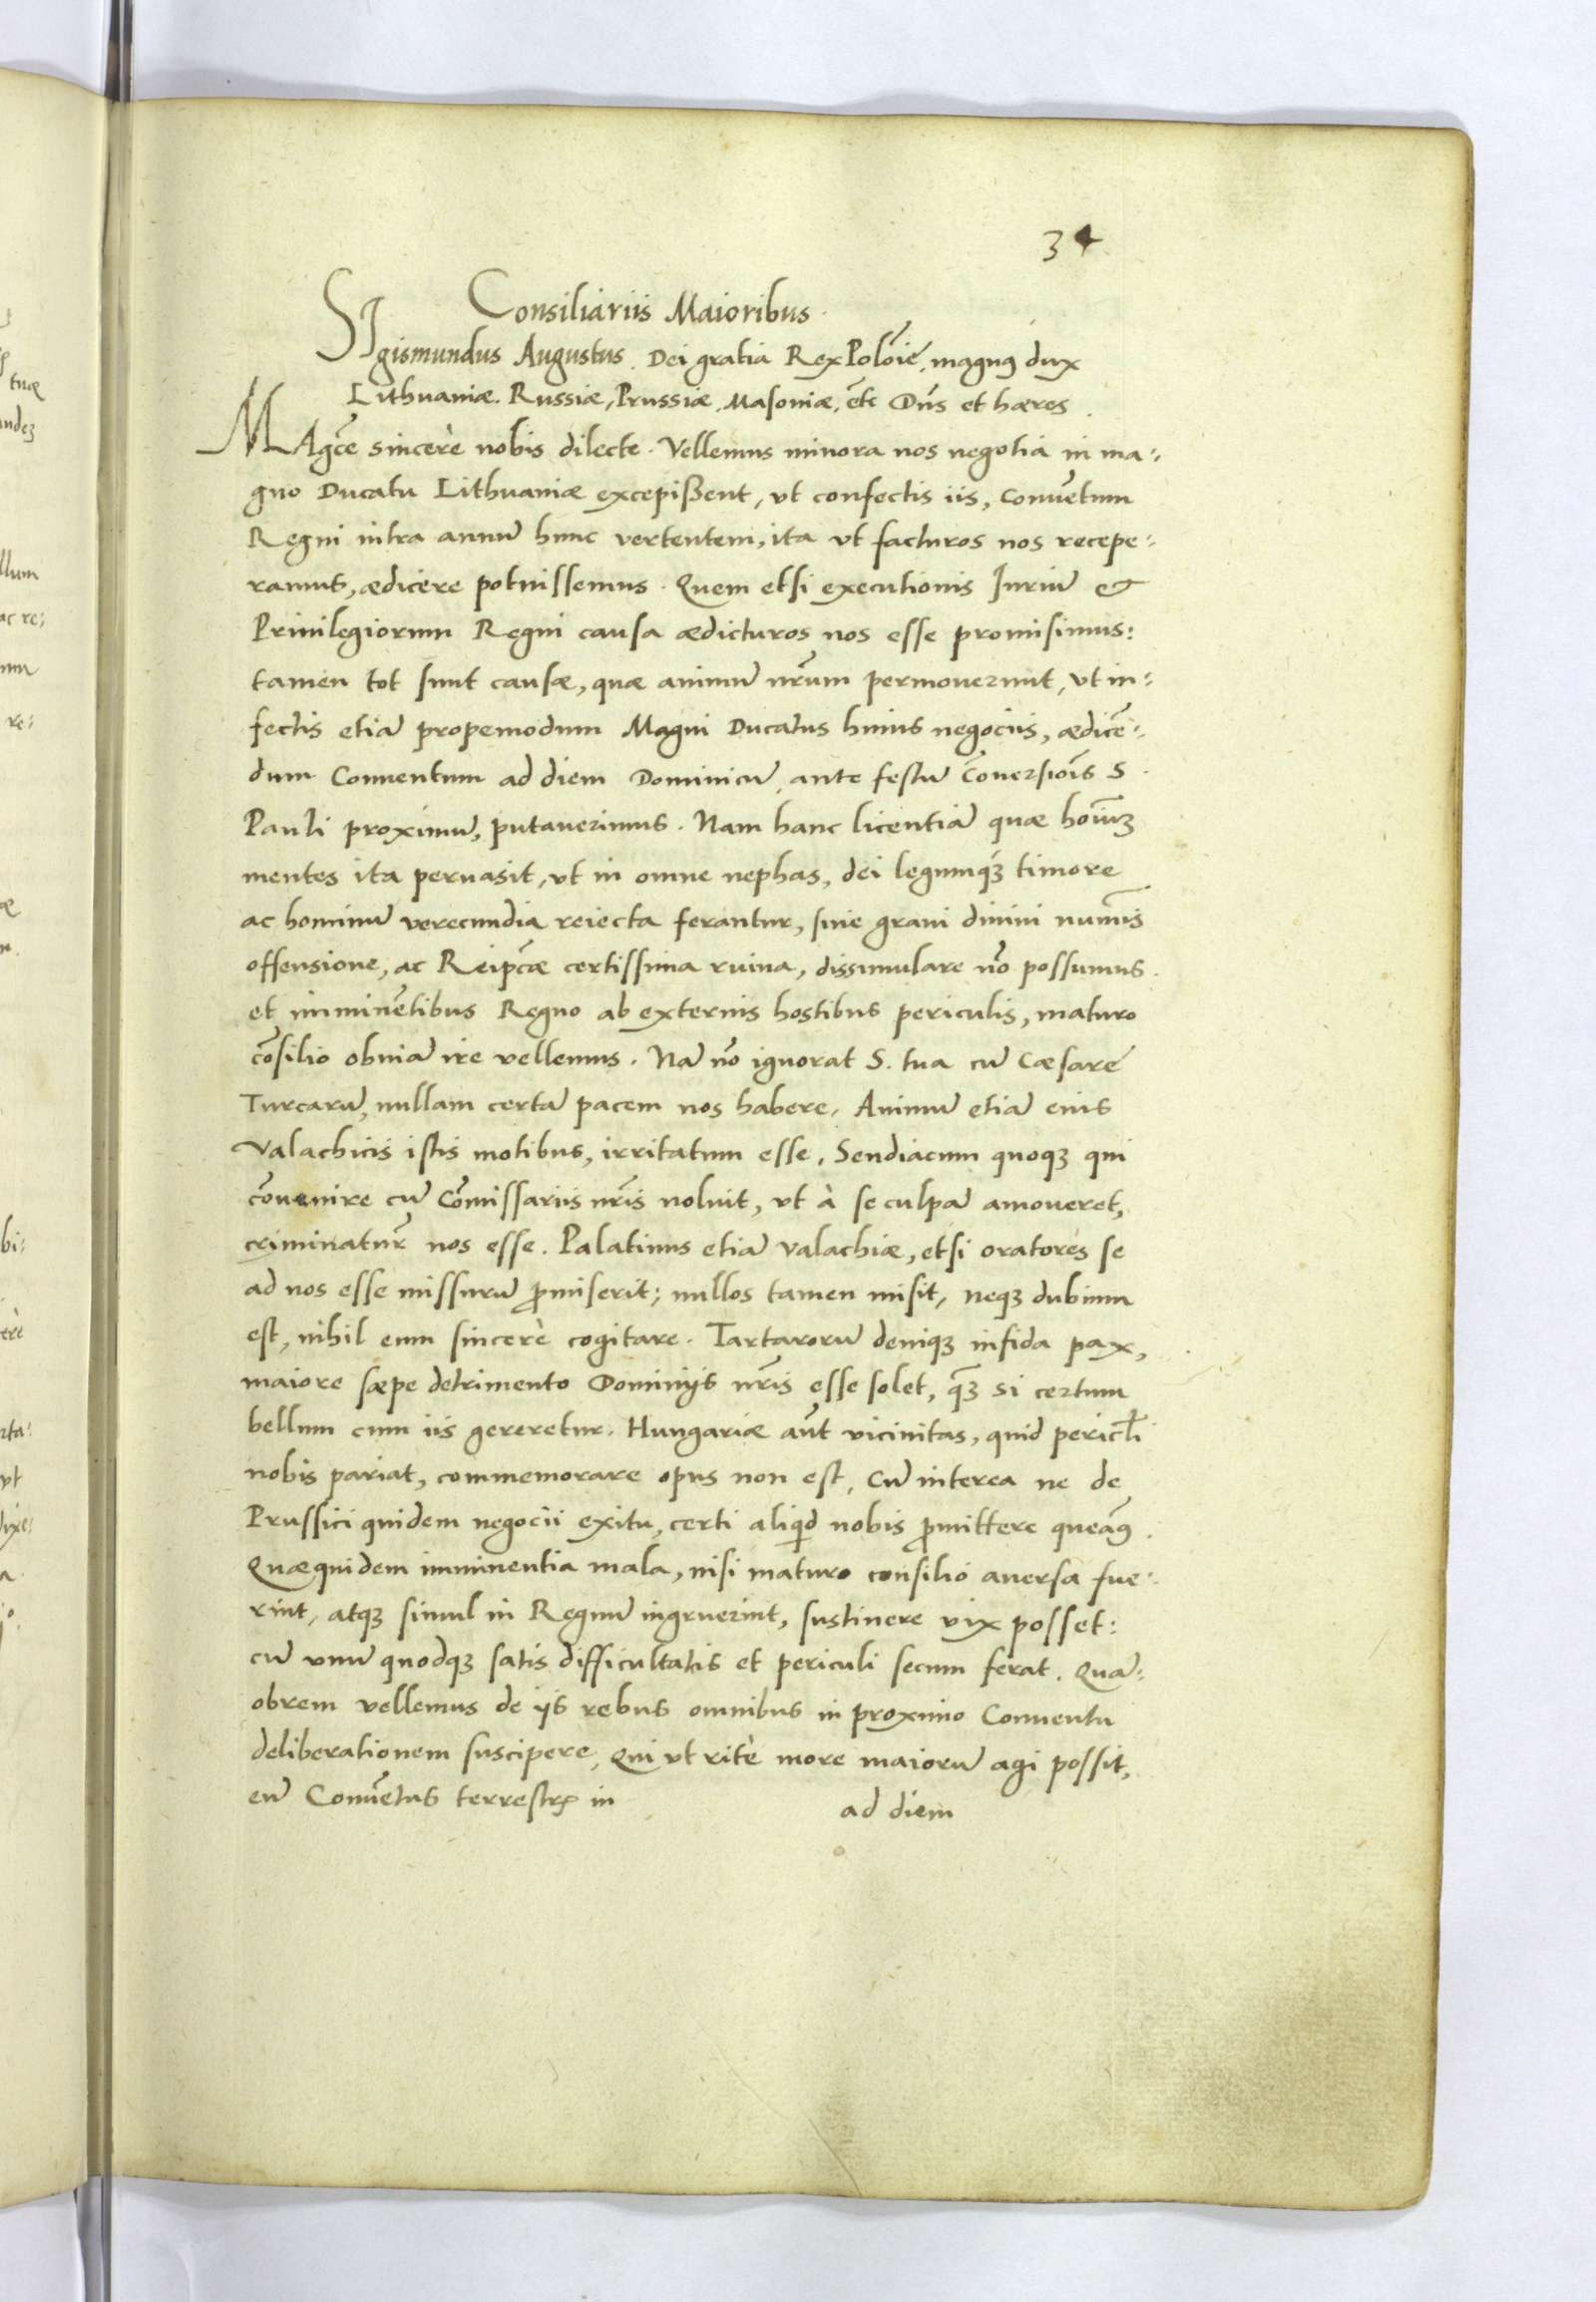 34
Consiliariis Maioribus
SIgismundus Augustus. Dei gratia Rex Polōie, magnus dux
Lithuaniæ. Russiæ, Prussiæ, Masoniæ, etc̄ Dn̄s et hæres.
MAgc̄e sincerè nobis dilecte. Vellemus minora nos negotia in ma-
gno Ducatu Lithuaniæ excepißent, vt confectis iis, Convētum
Regni intra annū hunc vertentem, ita vt facturos nos recepe-
ramus, ædicere potuissemus. Quem etsi executionis Iuriū &
Priuilegiorum Regni causa ædicturos nos esse promisimus:
tamen tot sunt causæ, quæ animū nr̄um permouerunt, vt in-
fectis etiā propemodum Magni Ducatus huius negociis, ædicē-
dum Conuentum ad diem Dominicū, ante festū Cōuersiōis S.
Pauli proximū, putauerimus. Nam hanc licentiā quæ hoīuꝫ
mentes ita peruasit, vt in omne nephas, dei legumqꝫ timore
ac hominū verecundia reiecta ferantur, sine graui diuini numīs
offensione, ac Reipc̄æ certissima ruina, dissimulare nō possumus.
et iminētibus Regno ab externis hostibus periculis, maturo
cōsilio obuiā ire vellemus. Nā nō ignorat S. tua cū Cæsare
Turcarū, nullam certā pacem nos habere. Animū etiā eius
Valachicis istis motibus, irritatum esse. Sendiacum quoqꝫ qui
cōuenire cū Cōmissariis nr̄is noluit, vt à se culpā amoueret,
criminatur̄ nos esse. Palatinus etiā Valachiæ, etsi oratores se
ad nos esse missurū p̄miserit; nullos tamen misit, neqꝫ dubium
est, nihil eum sincerè cogitare. Tartarorū deniqꝫ infida pax,
maiore sæpe detrimento Dominijs nr̄is esse solet, qꝫ si certum
bellum cum iis gereretur. Hungariæ aūt vicinitas, quid pericl̄i
nobis pariat, commemorare opus non est, Cū interea ne de
Prussici quidem negocii exitu, certi aliqd nobis p̄mittere queāꝰ.
Quæquidem imminentia mala, nisi maturo consilio auersa fue-
rint, atqꝫ simul in Regnū ingruerint, sustinere vix posset:
cū vnū quodqꝫ satis difficultatis et periculi secum ferat. Quā-
obrem vellemus de ijs rebus omnibus in proximo Conuentu
deliberationem suscipere, Qui vt ritè more maiorū agi possit,
eū Conuētus terrestrꝭ in ad diem